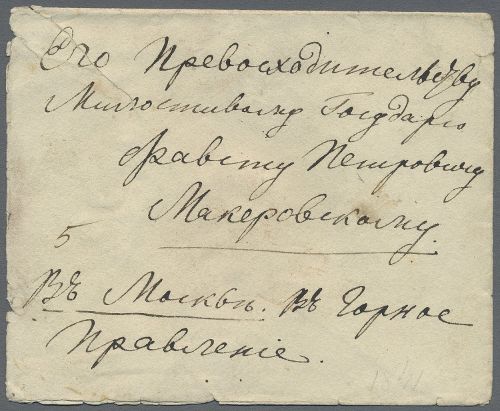 Его Превосходительству
Милостивому Государю
Фавсту Петровичу
Макеровскому.
5
Въ Москвѣ. Въ Горное
Правленіе.